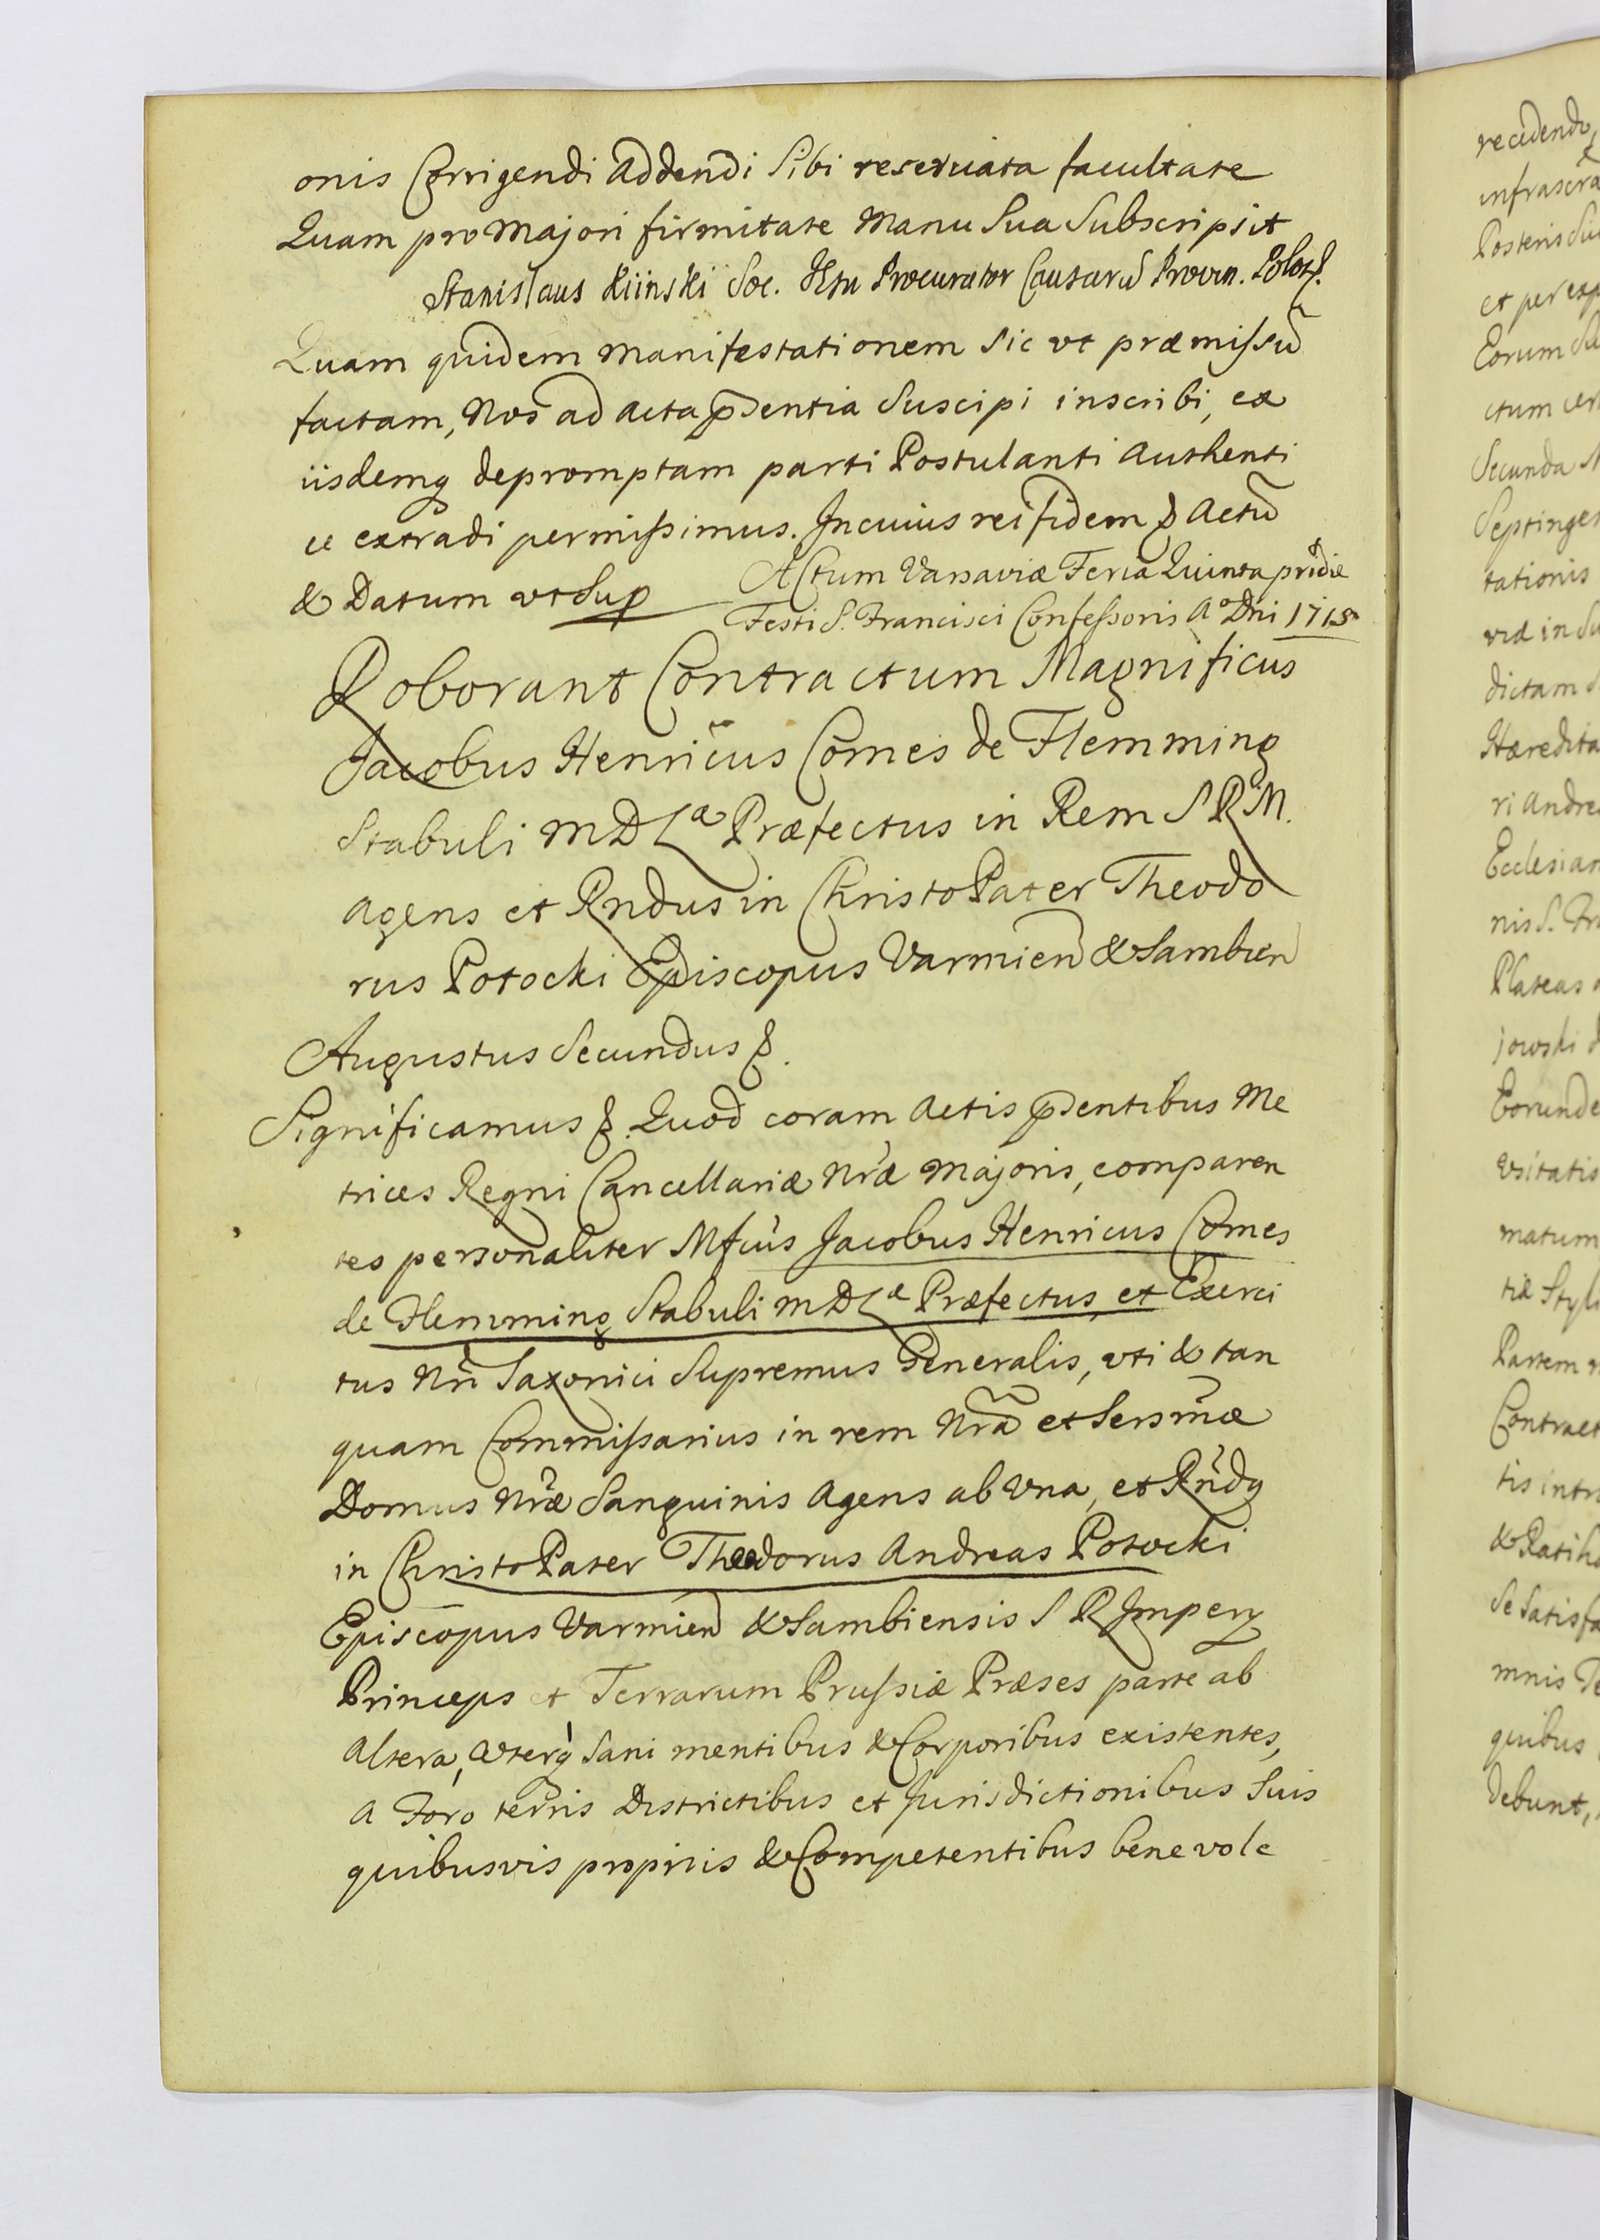 onis Corrigendi Addendi Sibi reservata facultate
Quam pro Majori firmitate Manu Sua Subscripsit
Stanislaus Kiinski Soc. Jesu Procurator Causarũ Provin. Polo
Quam quidem Manifestationem Sic vt præmissũ
factam, Nos ad Acta p̃sentia Suscipi inscribi, ex
iisdemq depromptam parti Postulanti Authenti
ce extradi permissimus. In cuius rei fidem & Actũ
& Datum vt Sup
Actum Varsaviæ Feria Quinta pridie
Festi S. Francisci Confessoris Aº Dni 1715
Roborant Contractum Magnificus
Jacobus Henricus Comes de Flemming
Stabuli M D L æ Præfectus in Rem S R M.
Agens et Rndus in Christo Pater Theodo
rus Potocki Episcopus Varmien & Sambien
Augustus Secundus &.
Significamus &. Quod coram Actis p̃sentibus Me
trices Regni Cancellariæ Nræ Majoris, comparen
tes personaliter Mfcus Jacobus Henricus Comes
de Flemming Stabuli M D L æ Præfectus, et Exerci
tus Nri Saxonici Supremus Generalis, vti & tan
quam Commissarius in rem Nrã et Sersmæ
Domus Nræ Sanguinis Agens ab Vna, et Rndq
in Christo Pater Theodorus Andreas Potocki
Episcopus Varmien & Sambiensis S R Impery
Princeps et Terrarum Prussiæ Præses parte ab
Altera, Vterq Sani mentibus & Corporibus existentes,
A Foro terris Districtibus et Jurisdictionibus Suis
quibusvis propriis & Competentibus benevole
recedendo,
Posteris
et per
Eorum
ctum
Secunda
tationis
dictam
Hæredita
ri Andre
Ecclesiar
nis S. Fr
Plateas
jowski
Eorunde
vsitatis
matum
tiæ Styl
Partem
Contract
tis intr
& Ratih
Se Satisfa
mnis
quibus
debunt,